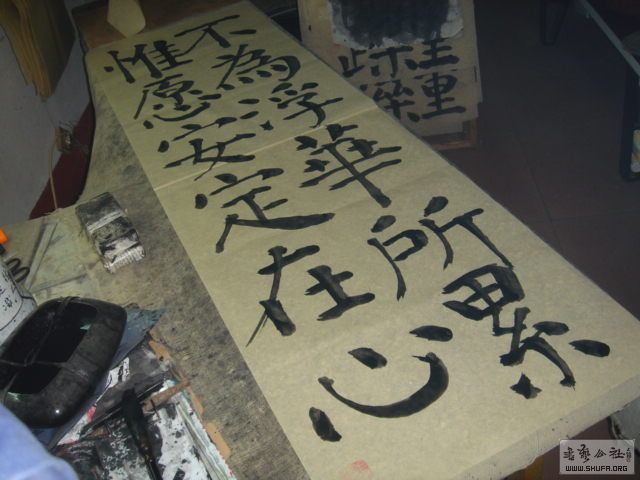 不為浮華所累
惟愿安定在心
書藝公社
WWW.SHUFA.ORG